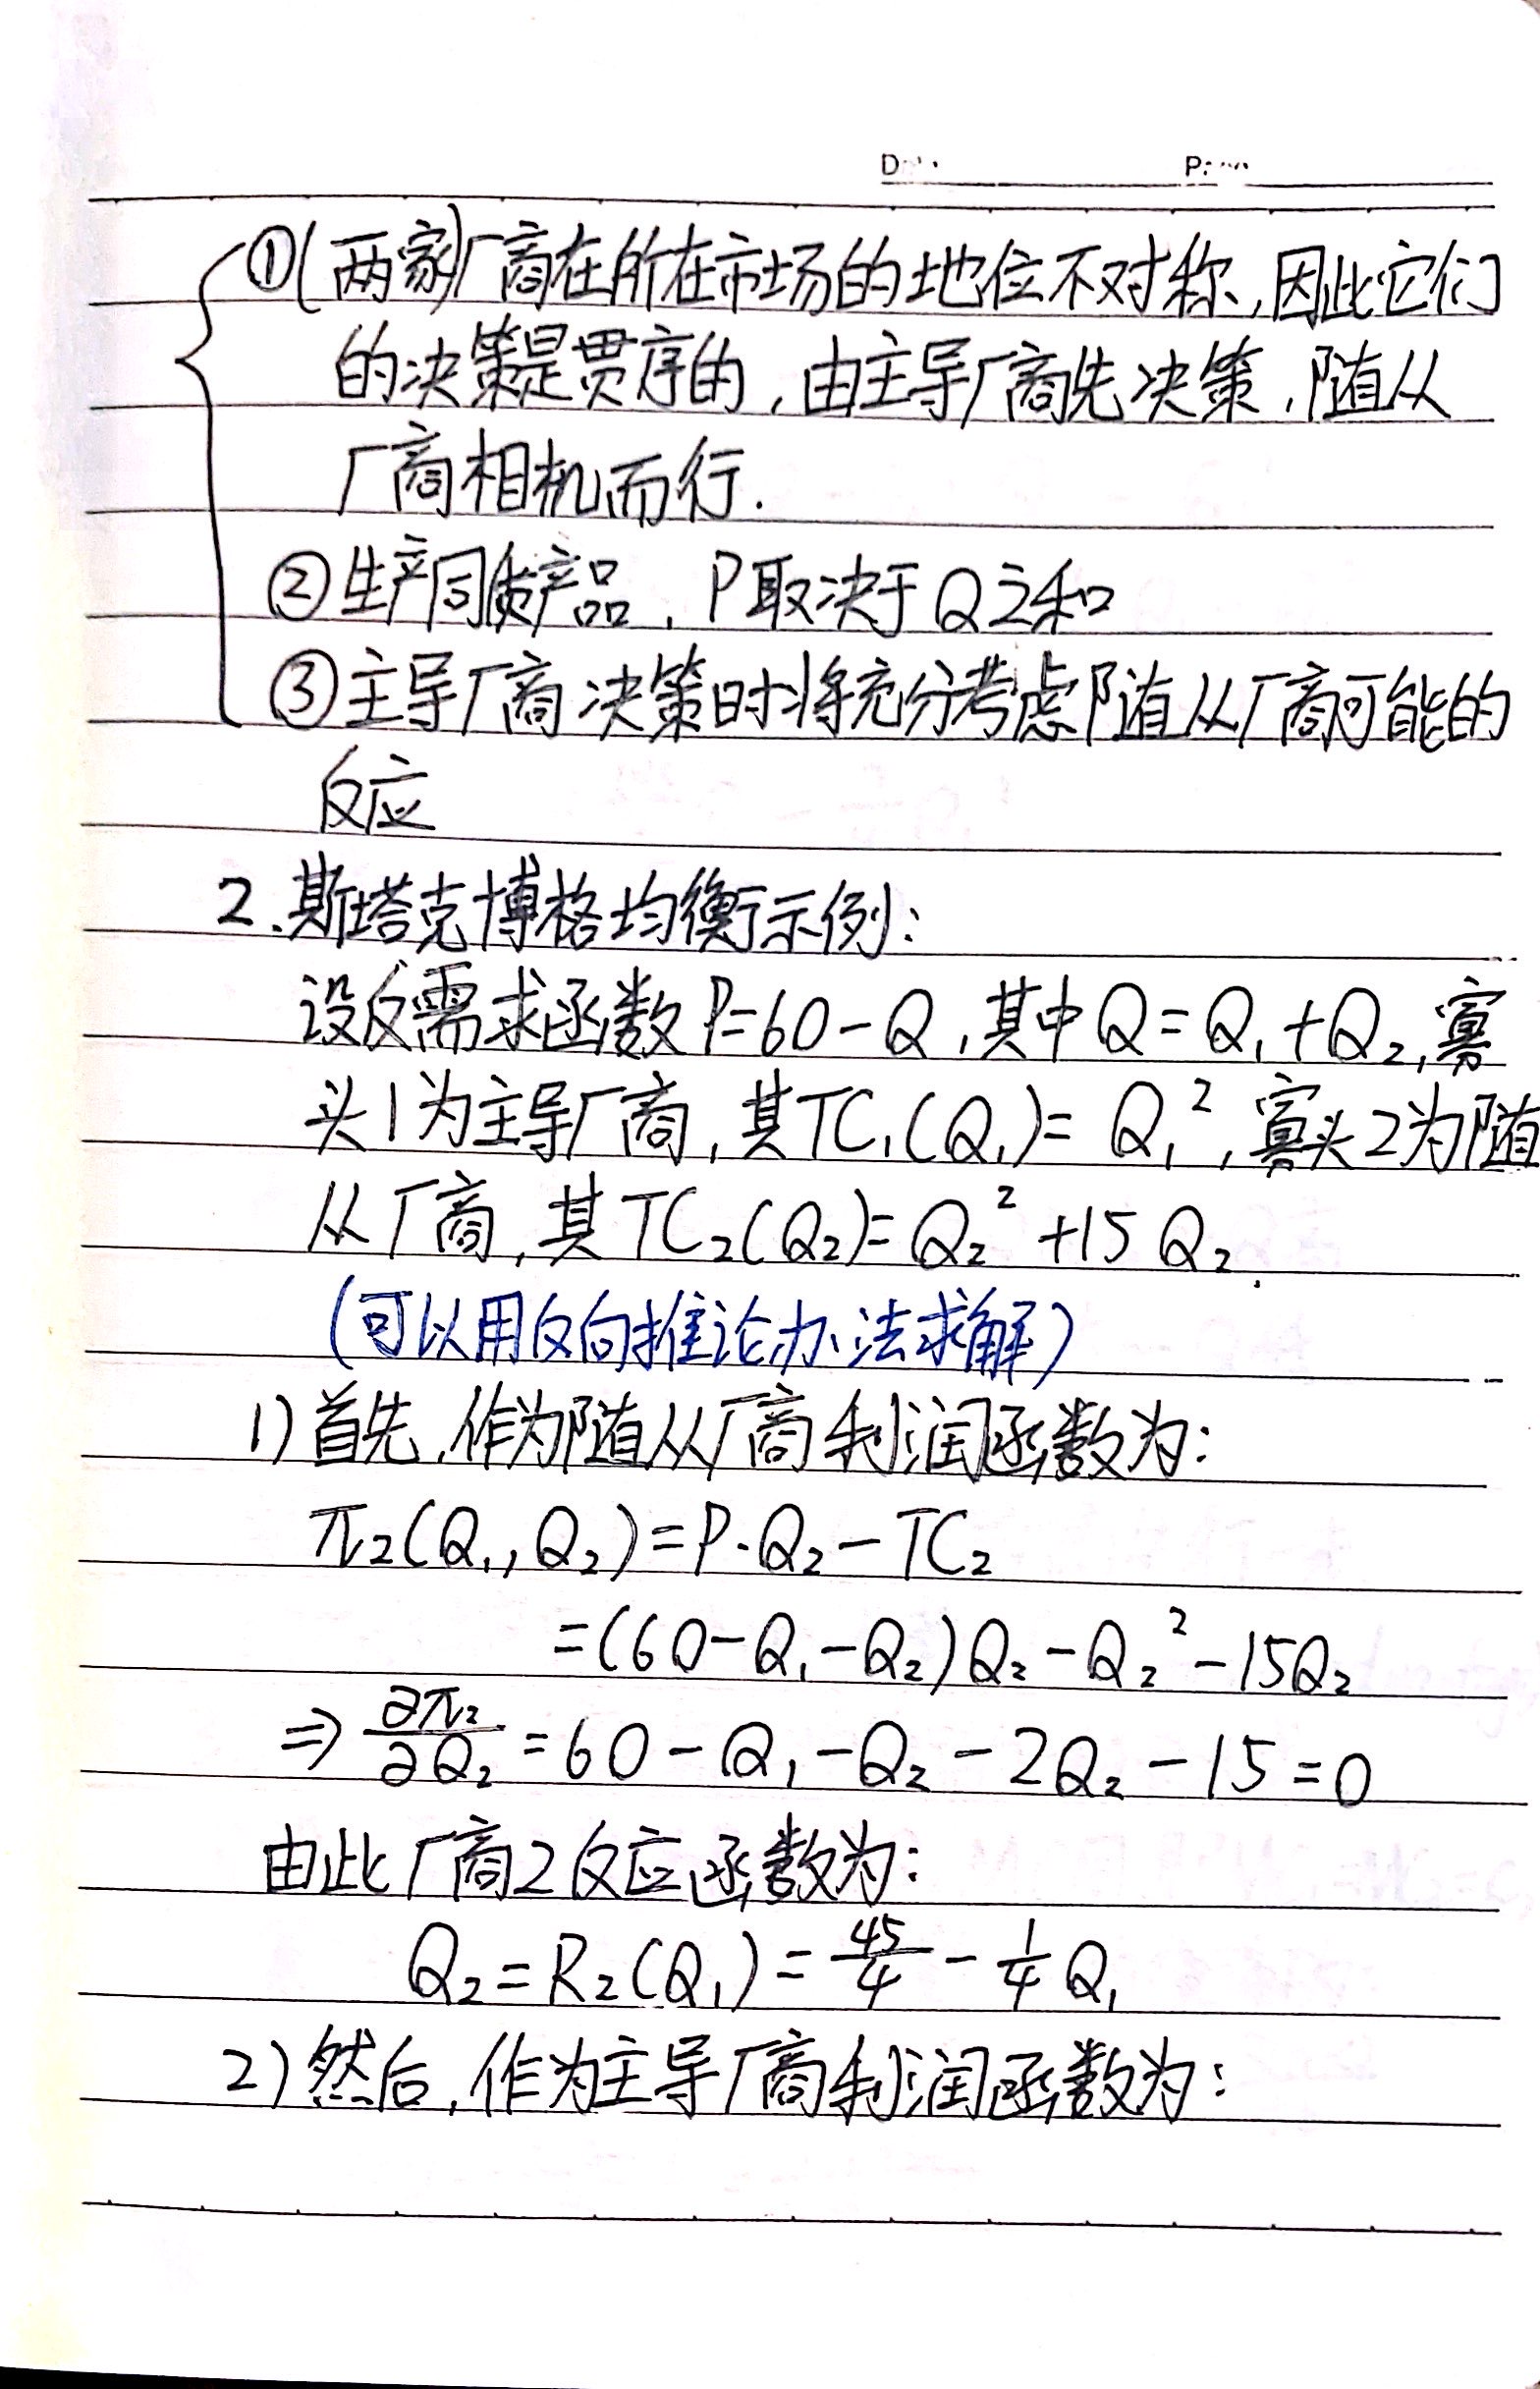 ①(两家)厂商在所在市场的地位不对称,因此它们
的决策是贯序的,由主导厂商先决策,随从
厂商相机而行.
②生产同质产品,P取决于Q之和
③主导厂商决策时将充分考虑随从厂商可能的
反应
2.斯塔克博格均衡示例:
设反需求函数P=60-Q,其中Q=Q₁+Q₂,寡
头1为主导厂商,其TC₁(Q₁)=Q₁²,寡头2为随
从厂商,其TC₂(Q₂)=Q₂²+15Q₂.
(可以用反向推论办法求解)
1)首先,作为随从厂商利润函数为:
π₂(Q₁,Q₂)=P·Q₂-TC₂
=(60-Q₁-Q₂)Q₂-Q₂²-15Q₂
⇒ ∂π₂/∂Q₂=60-Q₁-Q₂-2Q₂-15=0
由此厂商2反应函数为:
Q₂=R₂(Q₁)=45/4-1/4Q₁
2)然后,作为主导厂商利润函数为: